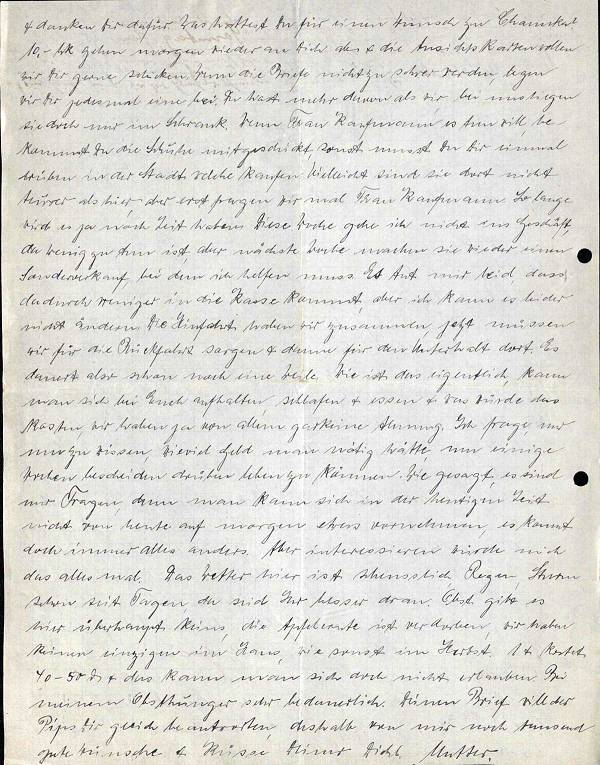 & danken Dir dafür. Was hattest Du für einen Wunsch zu Chanuka?
10,- Mk gehen morgen wieder an Dich ab & die Ansichtskarten wollen
wir Dir gerne schicken, wenn die Briefe nicht zu schwer werden, legen
wir Dir jedesmal eine bei. Du hast mehr davon als wir, bei uns liegen
sie doch nur im Schrank. Wenn Frau Kaufmann es tun will, be-
kommst Du die Schuhe mitgeschickt, sonst musst Du Dir einmal
drüben in der Stadt welche kaufen. Vielleicht sind sie dort nicht
teurer als hier, aber erst fragen wir mal Frau Kaufmann. So lange
wird es ja noch Zeit haben. Diese Woche gehe ich nicht ins Geschäft,
da wenig zu tun ist, aber nächste Woche machen sie wieder einen
Sonderverkauf, bei dem ich helfen muss. Es tut mir leid, dass
dadurch weniger in die Kasse kommt, aber ich kann es leider
nicht ändern. Die Hinfahrt haben wir zusammen, jetzt müssen
wir für die Rückfahrt sorgen & dann für den Unterhalt dort. Es
dauert also schon noch eine Weile. Wie ist das eigentlich, kann
man sich bei Euch aufhalten, schlafen & essen & was würde das
kosten, wir haben ja von allem garkeine Ahnung. Ich frage, nur
um zu wissen, wieviel Geld man nötig hätte um einige
Wochen bescheiden drüben leben zu können. Wie gesagt, es sind
nur Fragen, denn man kann sich in der heutigen Zeit
nicht von heute auf morgen etwas vornehmen, es kommt
doch immer alles anders. Aber interessieren würde mich
das alles mal. Das Wetter hier ist scheusslich, Regen, Sturm
schon seit Tagen, da seid Ihr besser dran. Obst gibt es
hier überhaupt keins, die Apfelernte ist verdorben, wir haben
keinen einzigen im Haus, wie sonst im Herbst. 1 & kostet
40-50 & das kann man sich doch nicht erlauben. Bei
meinem Obsthunger sehr bedauerlich. Deinen Brief will der
Pips Dir gleich beantworten, deshalb von mir noch tausend
gute Wünsche & Küsse Deiner Dichl. Mutter.